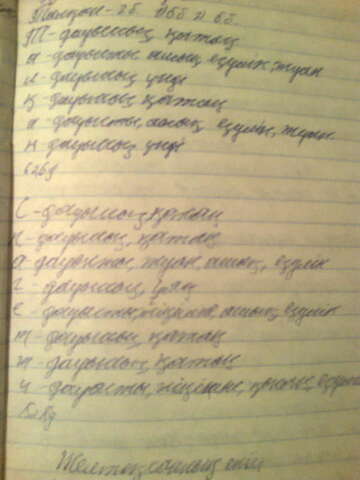 Талқан - 2б. 1) 6б 2) 6б.
Т - дауыссыз, қатаң
а - дауысты, ашық, езулік, жуан
л - дауыссыз, үнді
қ - дауыссыз, қатаң
а - дауысты, ашық, езулік, жуан
н - дауыссыз, үнді
6 ә 6 д
С - дауыссыз, қатаң
п - дауыссыз, қатаң
а - дауысты, жуан, ашық, езулік
г - дауыссыз, ұяң
е - дауысты, жіңішке, ашық, езулік
т - дауыссыз, қатаң
т - дауыссыз, қатаң
і - дауысты, жіңішке, қысаң, езулік